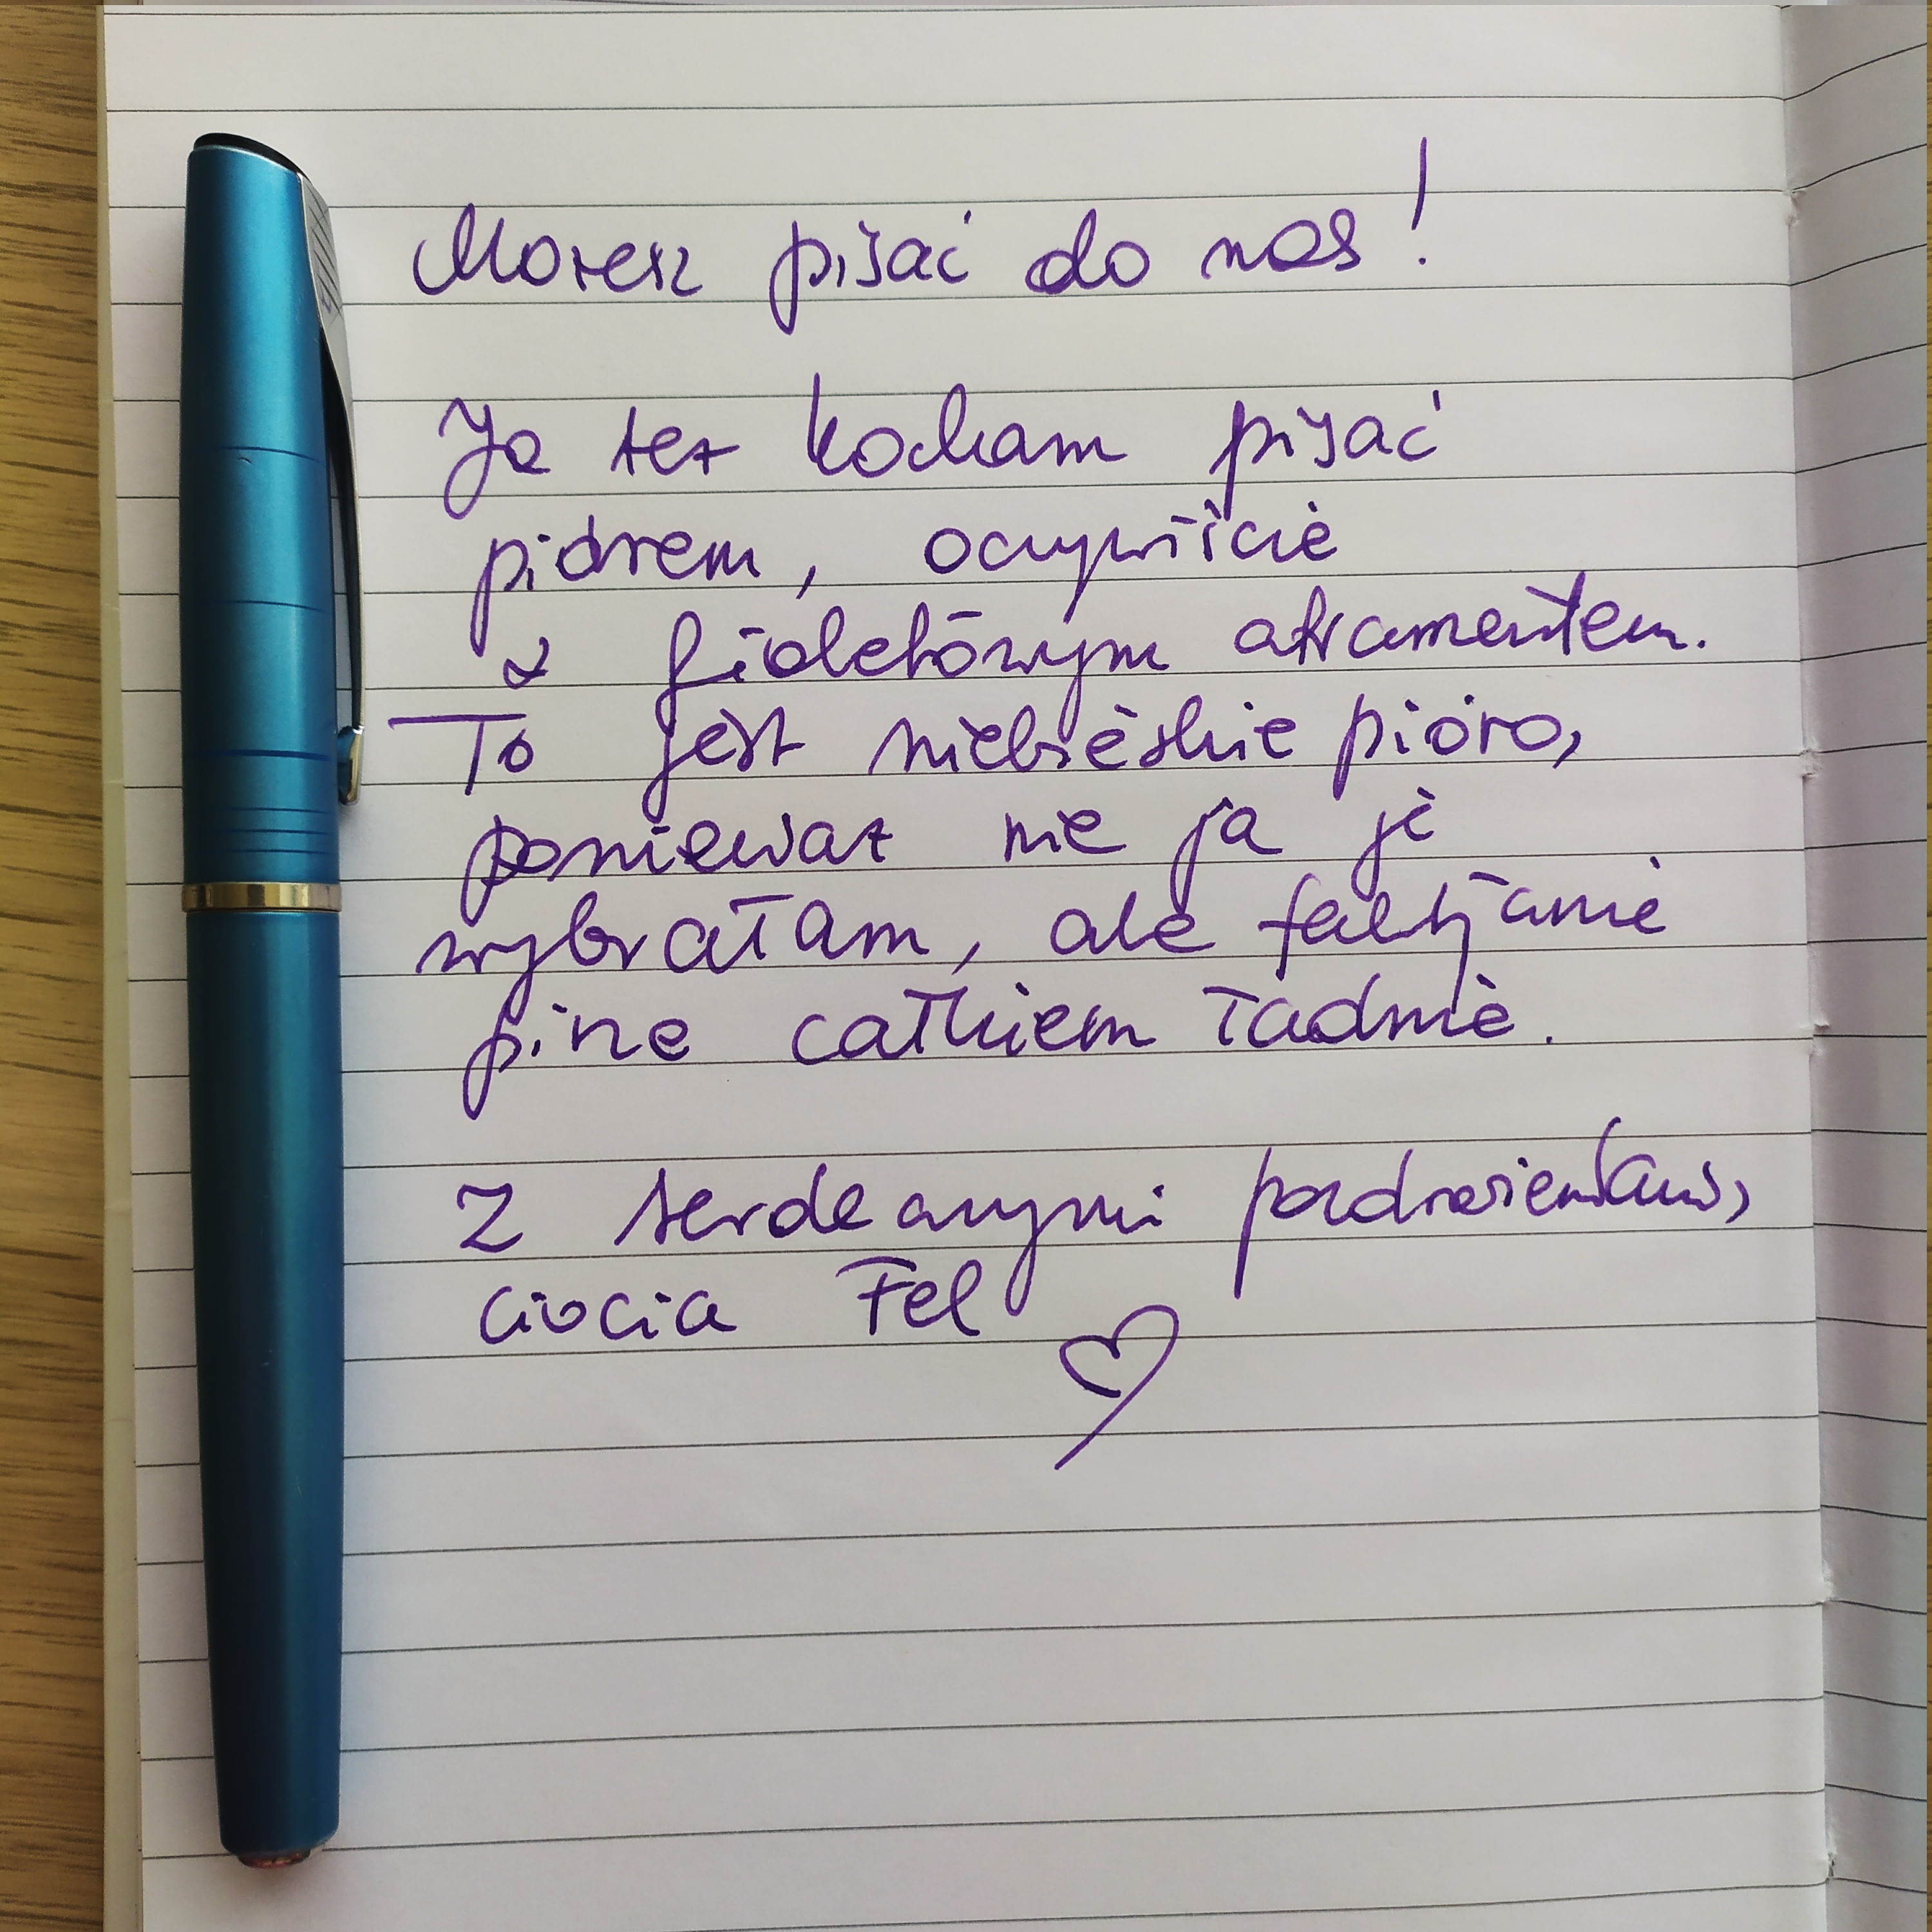 Możesz pisać do nas!
Ja też kocham pisać
piórem, oczywiście
z fioletowym atramentem.
To jest niebieskie pióro,
ponieważ nie ja je
wybrałam, ale faktycznie
pisze całkiem ładnie.
Z serdecznymi pozdrowieniami,
ciocia Fel